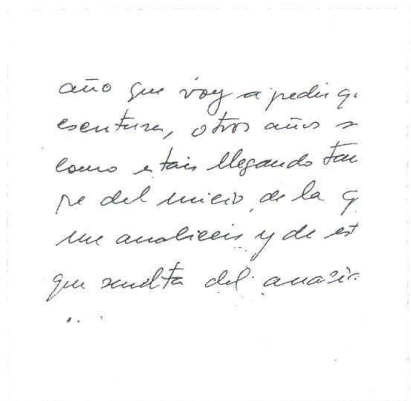 año que voy a pedir q.
escritura, otros años s
como estais llegando tan
pe del inicio de la q
me analiceis y de est
que resulta del anasi
...